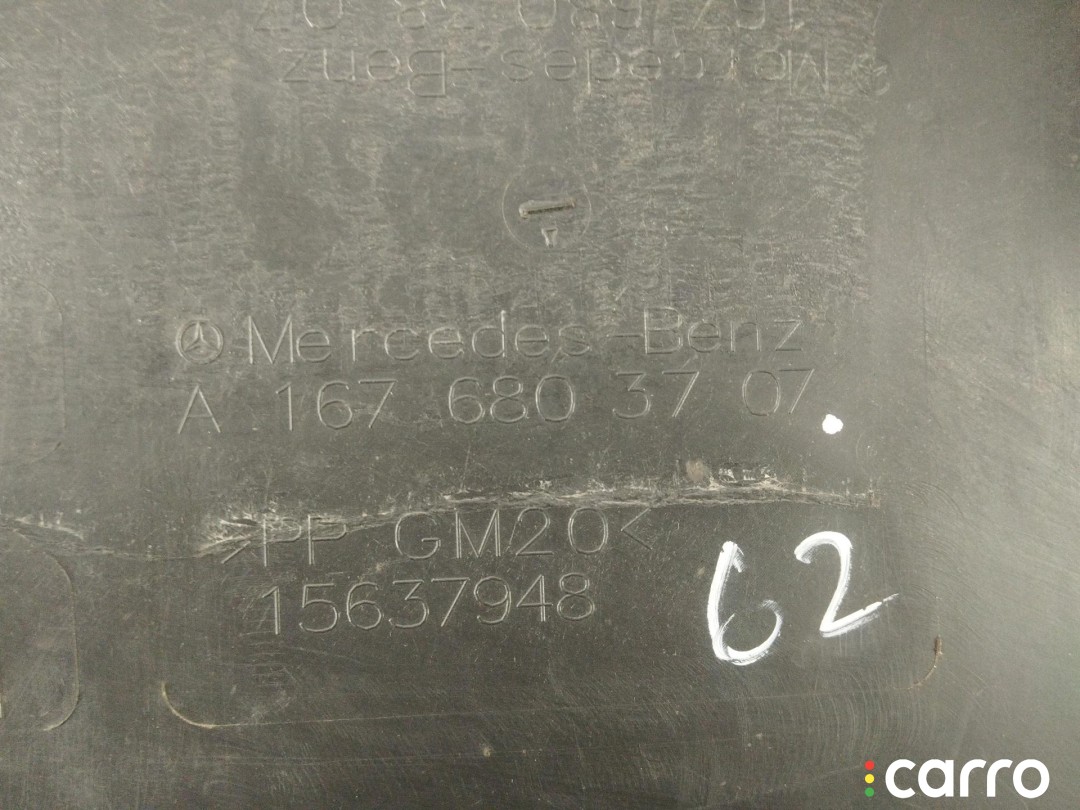 Mercedes-Benz
1
7
Mercedes-Benz
A 167 680 37 07
>PP GM20<
15637948
62
carro